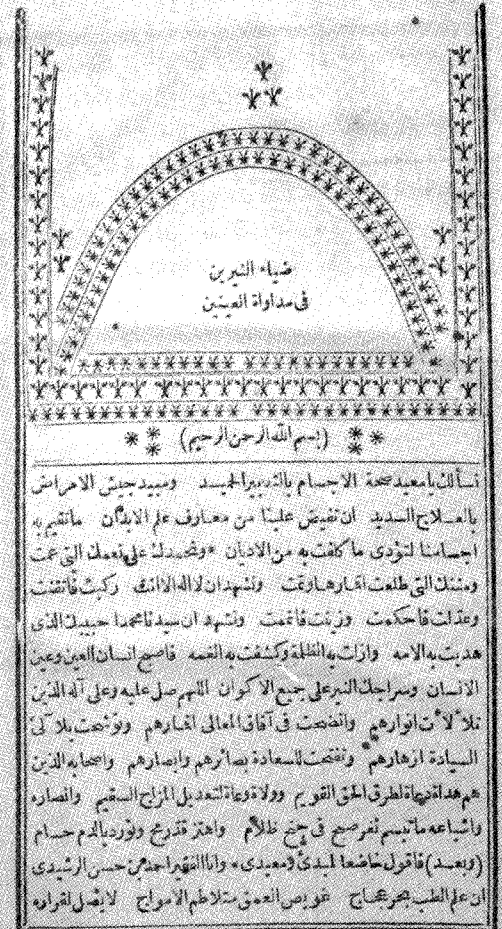 ضياء النيرين
فى مداواة العينين
(بسم الله الرحمن الرحيم)
نسألك يا معيد صحة الاجسام بالتدبير الحميد ومبيد جيش الامراض
بالعلاج السديد ان تفيض علينا من معارف علم الابدان ما تقيم به
اجسامنا لنؤدى ما كلفت به من الاديان ونحمدك على نعمك التى عمت
ومننك التى طلعت اقمارها وتمت ونشهد ان لا اله الا انت ركبت فاتقنت
وعدلت فاحكمت وزينت فاتممت ونشهد ان سيدنا محمدا حبيبك الذى
هديت به الامه وازلت به الظلمة وكشفت به الغمه فاصبح انسان العين وعين
الانسان وسراجك النير على جميع الاكوان اللهم صل عليه وعلى آله الذين
تلألأت انوارهم واتضحت فى آفاق المعالى اقمارهم وتوشحت بلآلئ
السيادة ازهارهم وتفتحت للسعادة بصائرهم وابصارهم واصحابه الذين
هم هداة دعاة لطرق الحق القويم وولاة وعاة لتعديل المزاج السقيم وانصاره
واشياعه ما تبسم ثغر صبح فى جنح ظلام واهتز قد رمح وتورد بالدم حسام
(وبعد) فاقول خاضعا لمبدئ ومعيدى وانا الفقير احمد بن حسن الرشيدى
ان علم الطب بحر عجاج غويص العمق متلاطم الامواج لا يصل لقراره